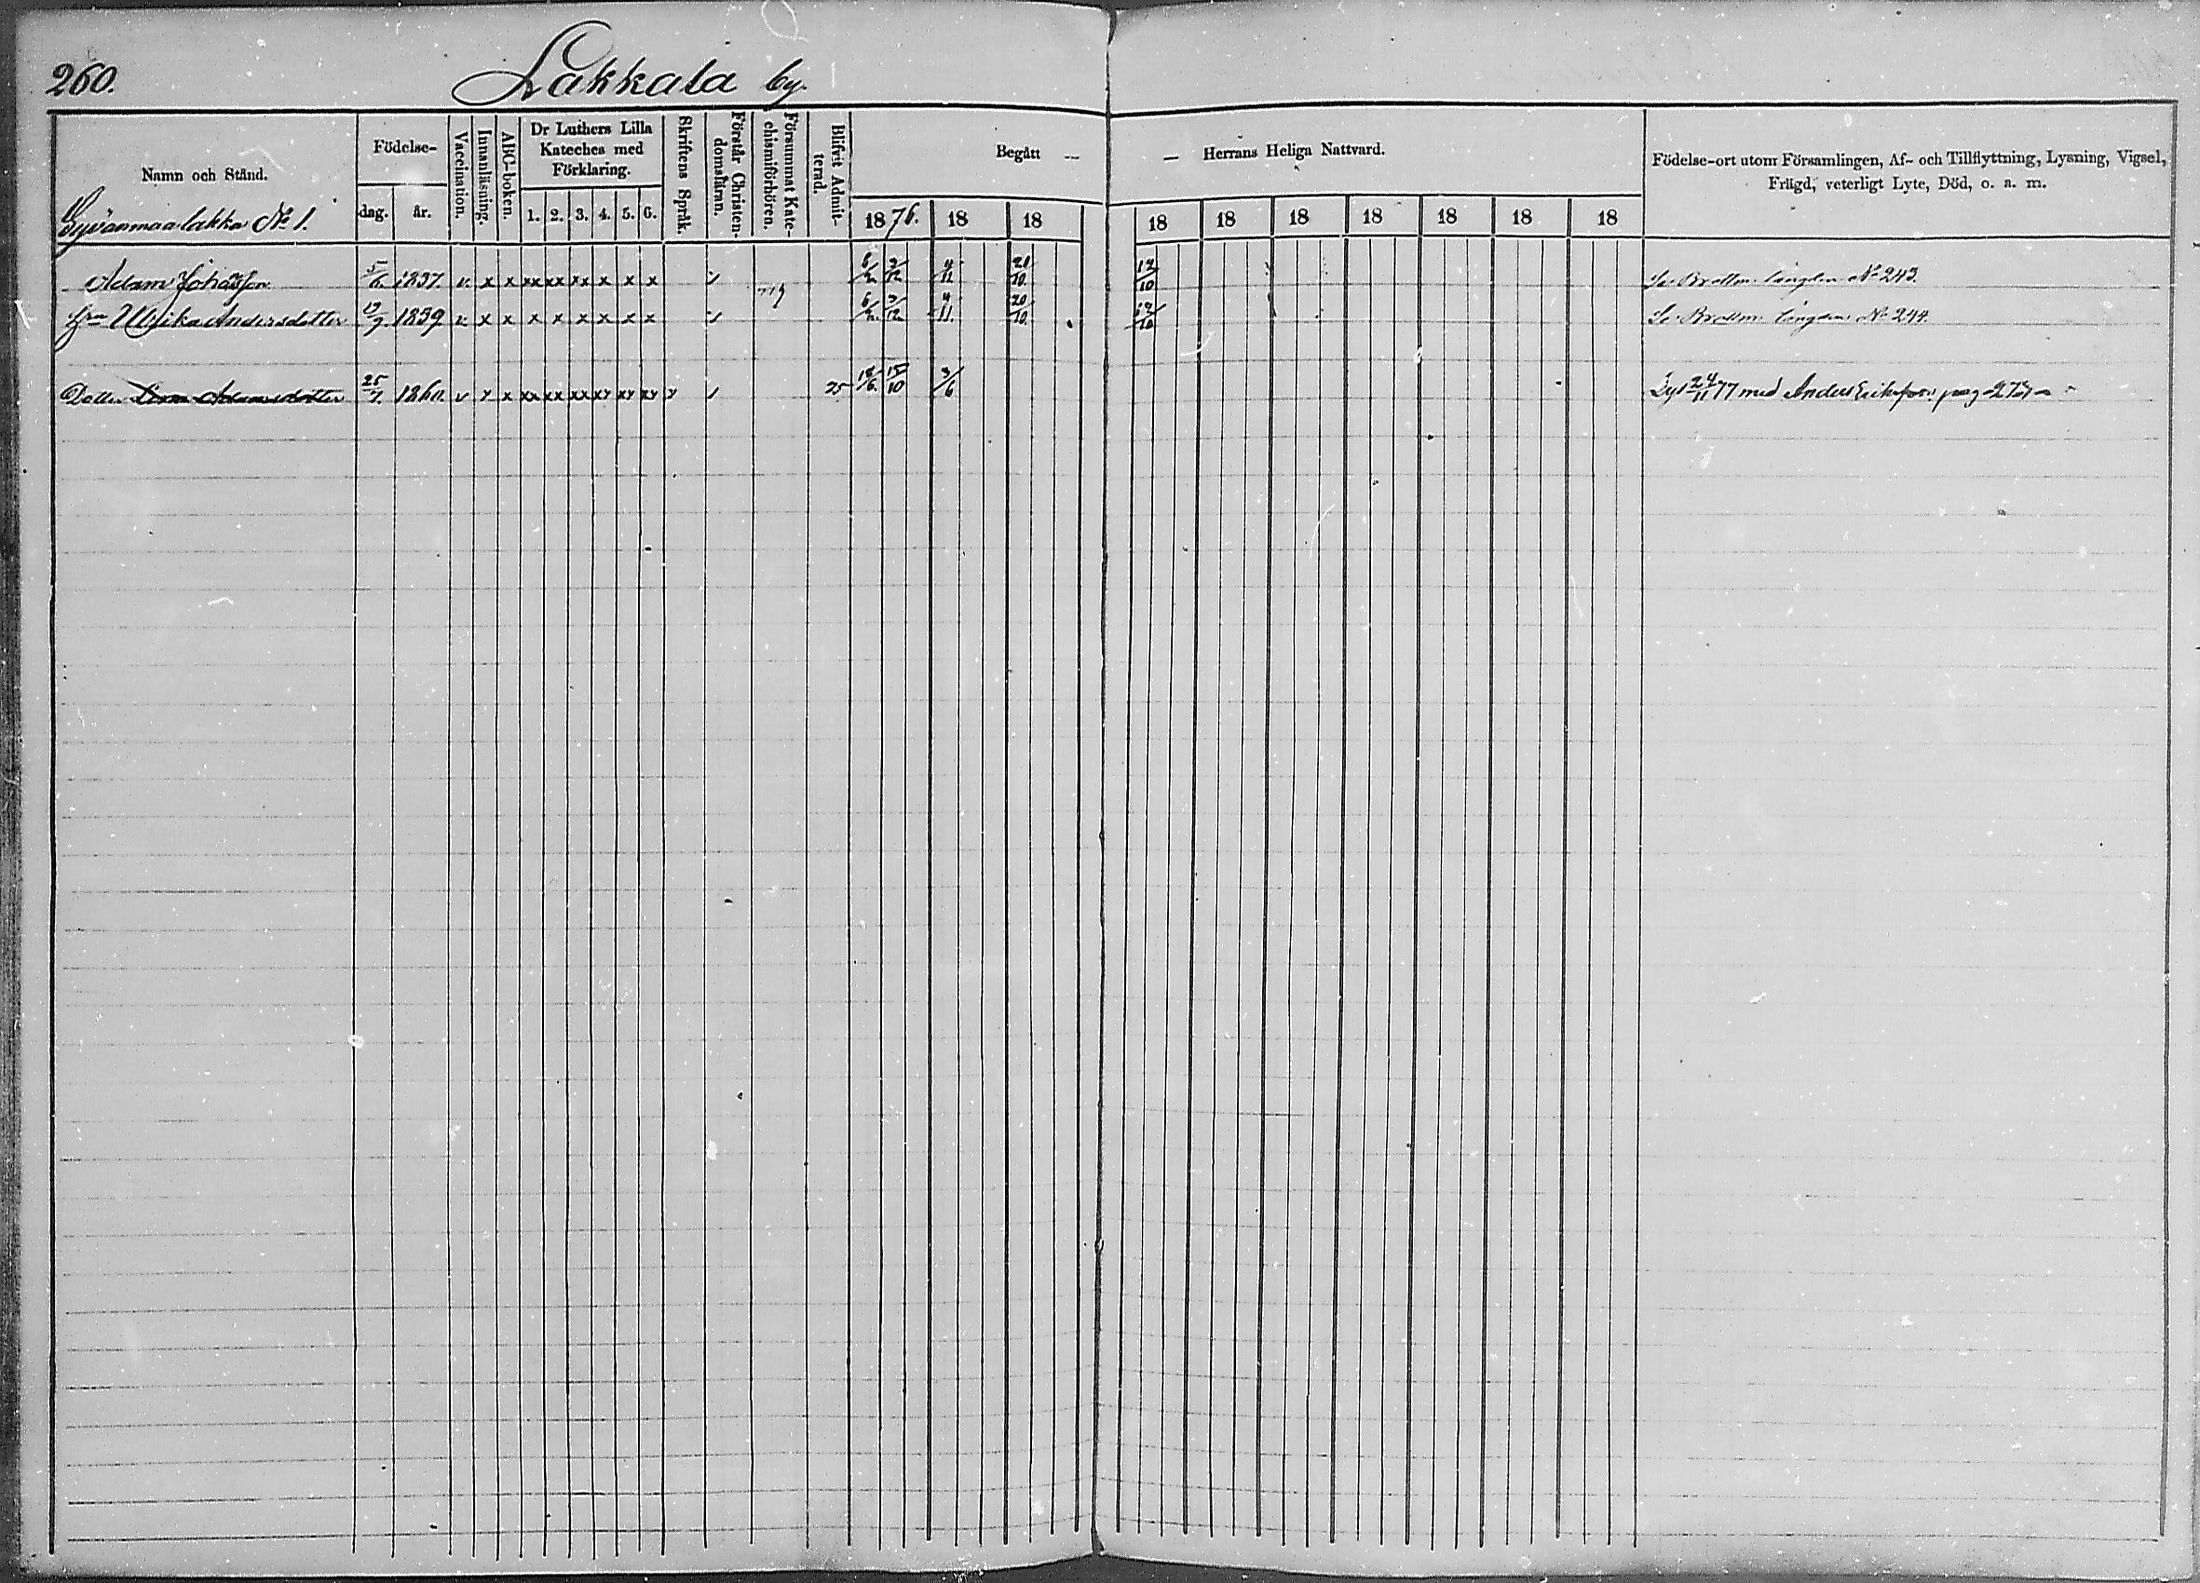 260. Lakkala by.
Namn och Stånd. Födelse- dag. år. Vaccination. Innanläsning. ABC-boken. Dr Luthers Lilla Kateches med Förklaring. 1. 2. 3. 4. 5. 6. Skriftens Språk. Förstår Christendomsläran. Försummat Katechismiförhören. Blifvit Admitterad. Begått — — Herrans Heliga Nattvard. Födelse-ort utom Församlingen, Af- och Tillflyttning, Lysning, Vigsel, Frägd, veterligt Lyte, Död, o. a. m.
1876. 18 18 18 18 18 18 18 18 18
Syvänmaalakka No 1.
Adam Johansson 5/6. 1837. v. x x xx xx xx x x x 1 6/2 3/12 4/11 20/10. 12/10 Se Brottm. längden No 243.
Hru Ulrika Andersdotter 13/9 1839 v. x x x x x x x x 1 6/2 3/12 4/11. 20/10. 12/10 Se Brottm. längden No 244.
Dotter Adamsdotter 25/7. 1860. v x x xx xx xx xx xx xx x 1 25 18/6. 15/10 3/6 Lyst 24/11 77 med Anders Eriksson pag